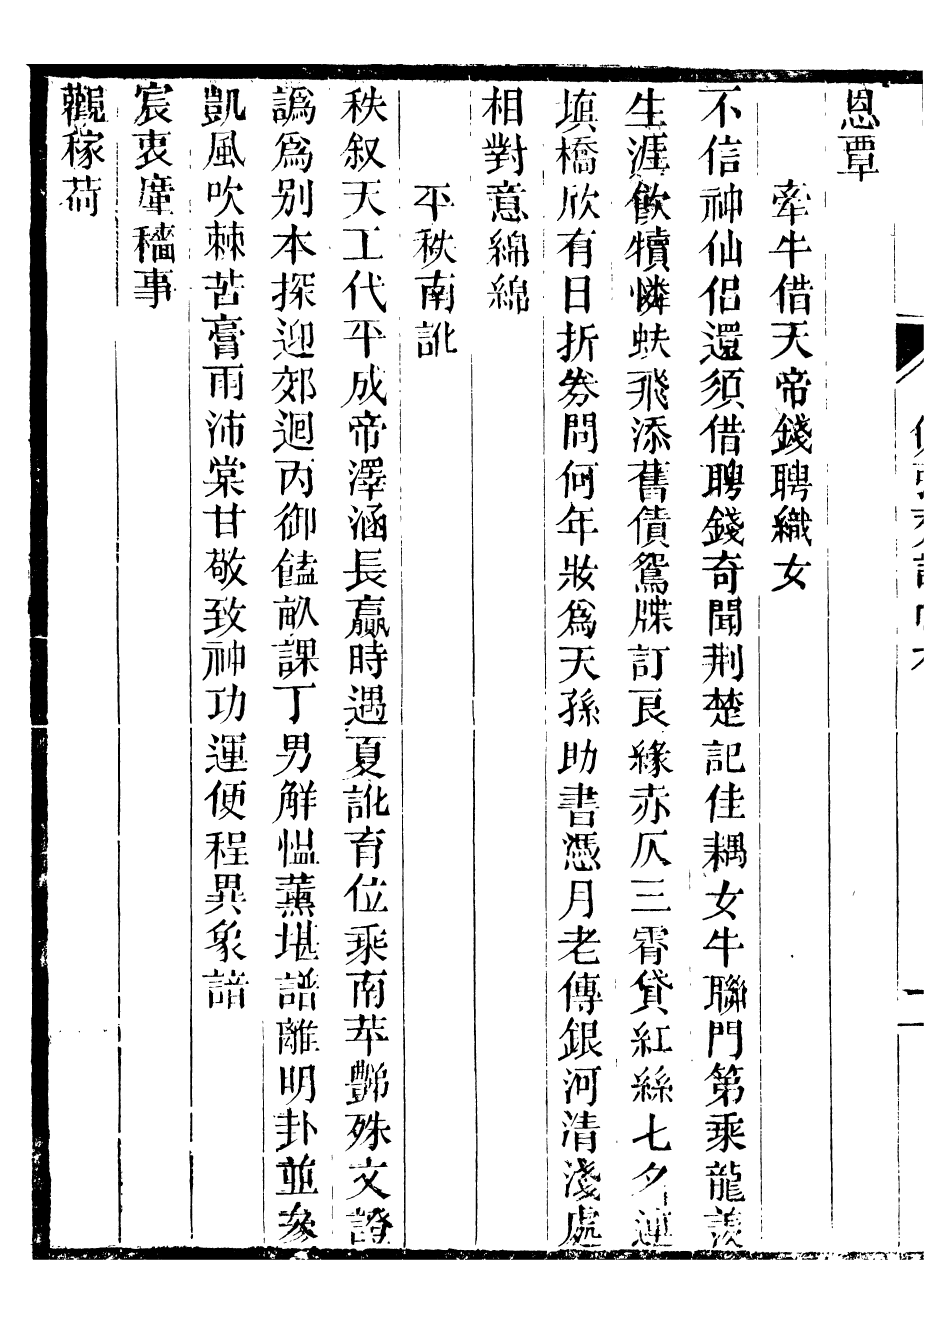 恩覃
牽牛借天帝錢聘織女
不信神仙侶還須借聘錢奇聞荆楚記佳耦女牛聯門第乘龍羨
生涯飲犢憐蚨飛添舊債鴛牒訂良緣赤仄三霄貸紅絲七夕連
填橋欣有日折券問何年妝爲天孫助書憑月老傳銀河清淺處
相對意綿綿
平秩南訛
秩叙天工代平成帝澤涵長嬴時遇夏訛育位乘南苹艷殊文證
譌爲别本探迎郊迴丙御饁畝課丁男解愠薰堪譜離明卦並參
凱風吹棘苦膏雨沛棠甘敬致神功運便程異象諳
宸衷廑穡事
觀稼荷